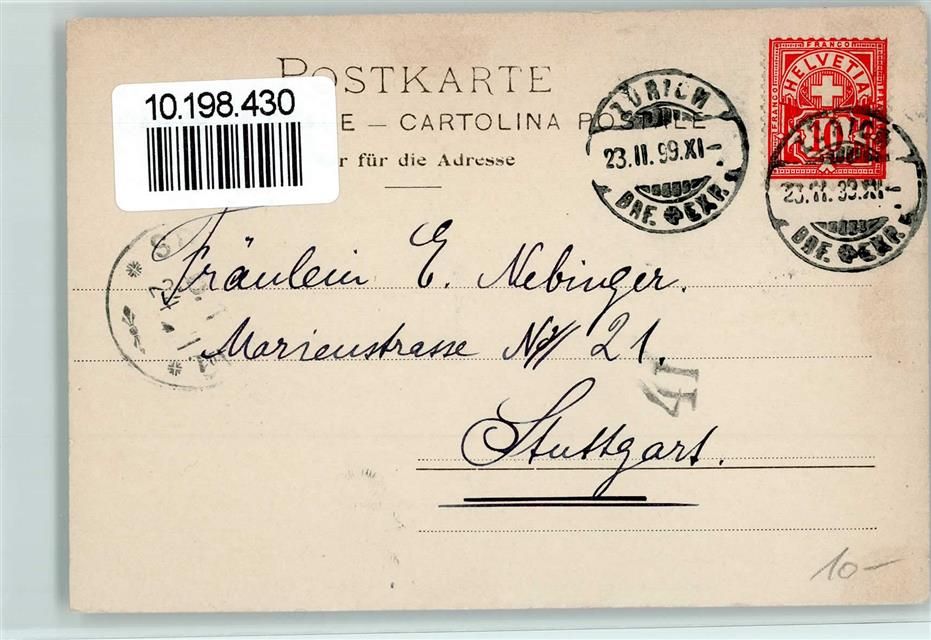 POSTKARTE
10.198.430
E — CARTOLINA POSTALE
r für die Adresse
FRANCO
HELVETIA
FRANCO
10
ZÜRICH
23.II.99.XI-
BRF. EXP.
ZÜRICH
23.II.99.XI-
BRF. EXP.
Fräulein E. Nebinger.
Marienstrasse No 21.
41
Stuttgart.
10-